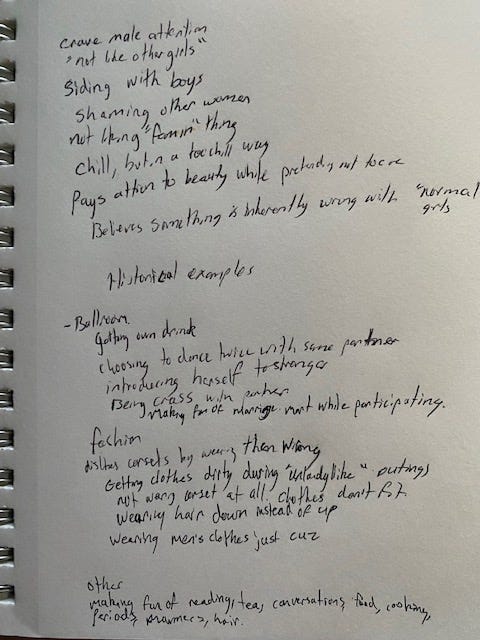 crave male attention
"not like other girls"
siding with boys
shaming other women
not liking "femin" thing
chill, but in a too chill way
Pays attion to beauty while pretending not to care
Believes something is inherently wrong with "normal
girls
Historical examples
- Ballroom
Getting own drink
choosing to dance twice with same partner
introducing herself to stranger
Being crass with partner
Making fun of marriage mart while participating.
fashion
dislikes corsets by wearing them wrong
Getting clothes dirty during "unladylike" outings
not waring corset at all. clothes don't fit
Wearing hair down instead of up
wearing men's clothes just cuz
other
making fun of reading, tea, conversations, food, cooking,
periods, hair.